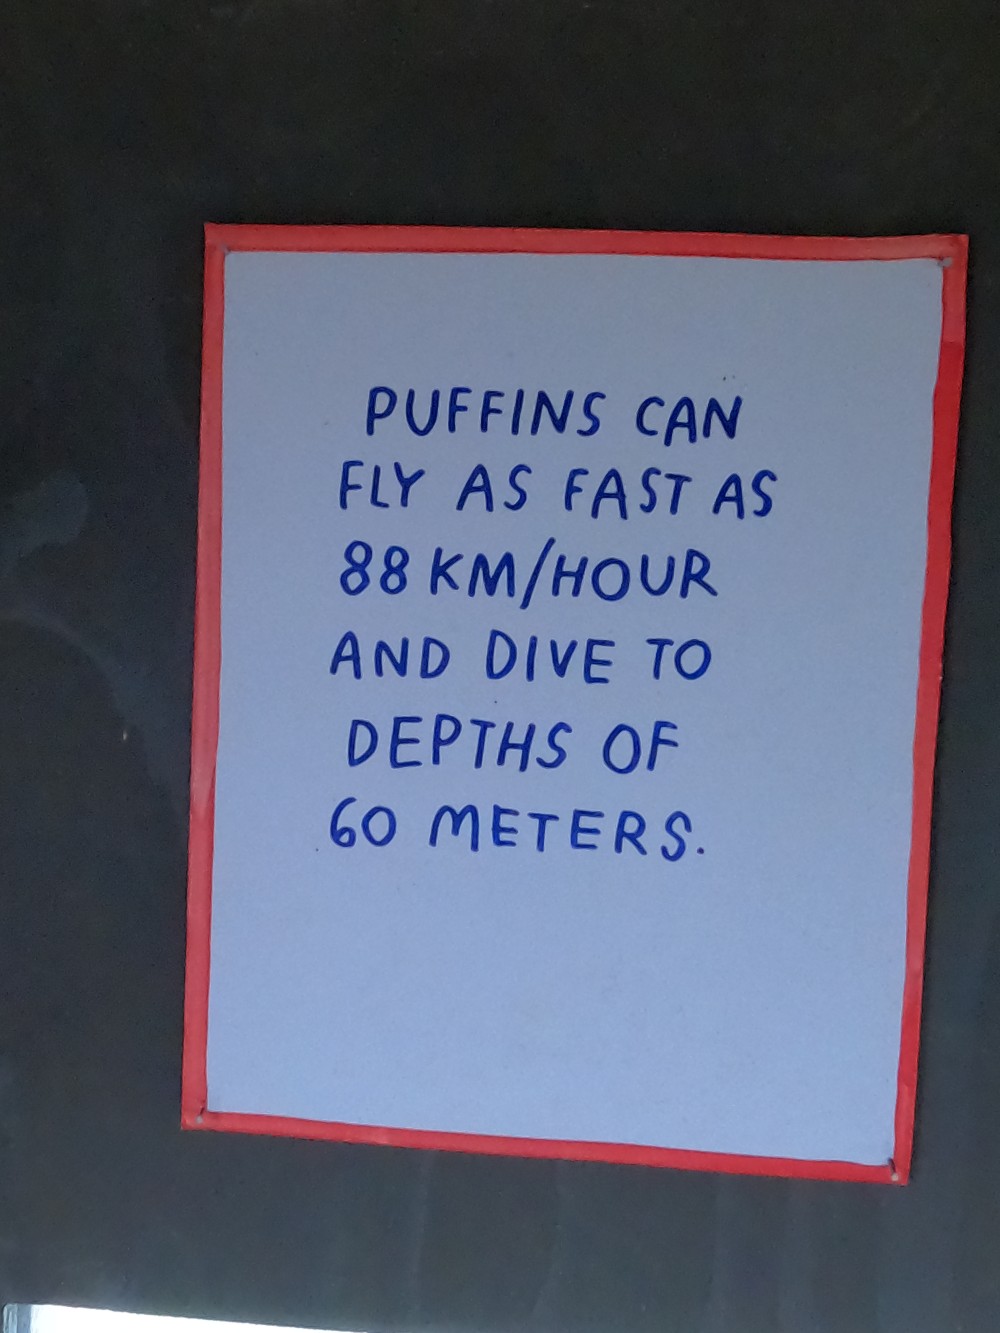 PUFFINS CAN
FLY AS FAST AS
88 KM/HOUR
AND DIVE TO
DEPTHS OF
60 METERS.